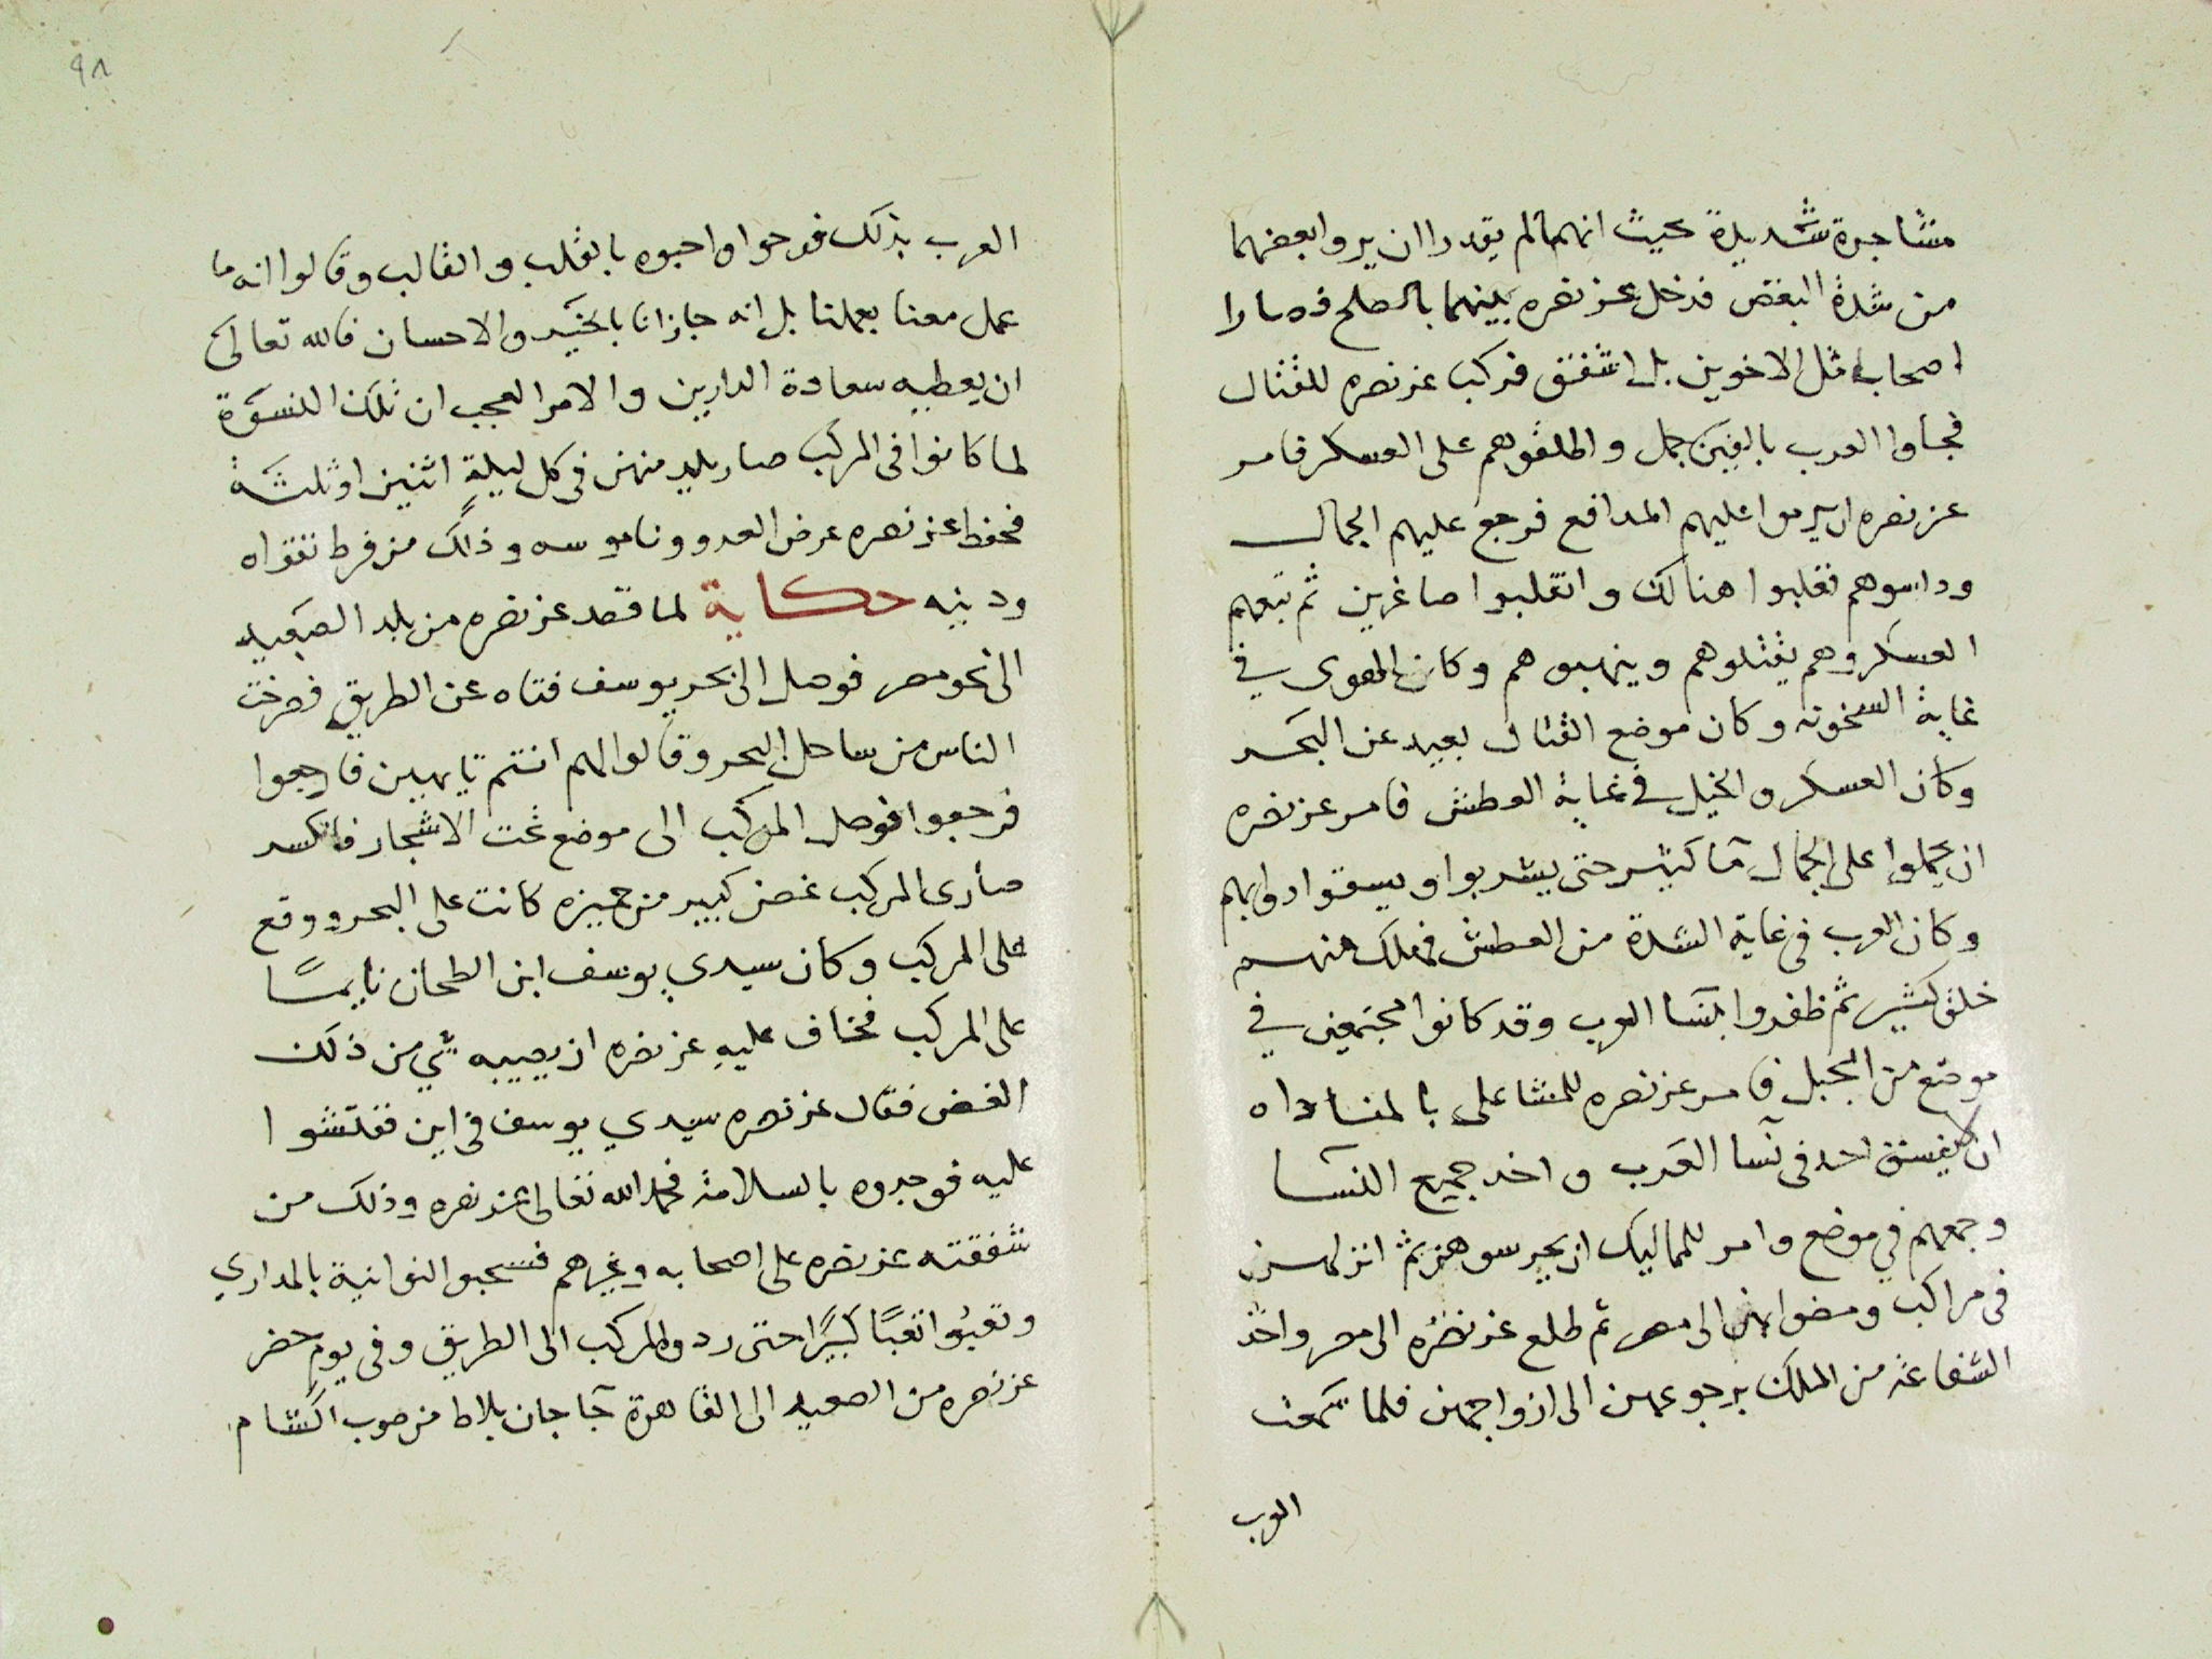 مشاجرة شديدة بحيث انهما لم يقدرا ان يروا بعضهما
من شدة البغض فدخل عز نصره بينهما بالصلح فصارا
اصحاب مثل الاخوين بل اشفق فركب عز نصره للقتال
فجاوا العرب بالفين جمل واطلقوهم على العسكر فامر
عز نصره ان يرموا عليهم المدافع فرجع عليهم الجمال
وداسوهم فغلبوا هنالك وانقلبوا صاغرين ثم تبعهم
العسكر وهم يقتلوهم وينهبوهم وكان الهوى في
غاية السخونه وكان موضع القتال بعيد عن البحر
وكان العسكر والخيل في غاية العطش فامر عز نصره
ان يحملوا على الجمال مآ كثير حتى يشربوا ويسقوا دوابهم
وكان العرب في غاية الشدة من العطش فهلك منهم
خلق كثير ثم ظفروا بنسآ العرب وقد كانوا مجتمعين في
موضع من الجبل فامر عز نصره للمشاعلى بالمناداه
ان لا يفسق احد في نسآ العرب واخد جميع النسآ
وجمعهم في موضع وامر للمماليك ان يحرسوهن ثم انزلهن
في مراكب ومضوا بهن الى مصر ثم طلع عز نصره الى مصر واخذ
الشفاعة من الملك برجوعهن الى ازواجهن فلما سمعت
العرب
٩٨
العرب بذلك فرحوا واحبوه بالقلب والقالب وقالوا انه ما
عمل معنا بعملنا بل انه جازانا بالخير والاحسان فالله تعالى
ان يعطيه سعادة الدارين والامر العجب ان تلك النسوة
لما كانوا في المركب صار يلد منهن في كل ليلة اثنين او ثلثة
فحفظ عز نصره عرض العدو وناموسه وذلك من فرط تقواه
ودينه حكاية لما قصد عز نصره من بلد الصعيد
الى نحو مصر فوصل الى بحر يوسف فتاه عن الطريق فصرخت
الناس من ساحل البحر وقالوا لهم انتم تايهين فارجعوا
فرجعوا فوصل المركب الى موضع تحت الاشجار فانكسر
صارى المركب غصن كبير من جميزه كانت على البحر ووقع
على المركب وكان سيدي يوسف ابن الطحان نايمًا
على المركب فخاف عليه عز نصره ان يصيبه شي من ذلك
الغصن فقال عز نصره سيدي يوسف في اين ففتشوا
عليه فوجدوه بالسلامة فحمد الله تعالى عز نصره وذلك من
شفقته عز نصره على اصحابه وغيرهم فسحبو النواتية بالمداري
وتعبوا تعبًا كبيرًا حتى ردوا المركب الى الطريق وفي يوم حضر
عز نصره من الصعيد الى القاهرة جآ جان بلاط من صوب الشام